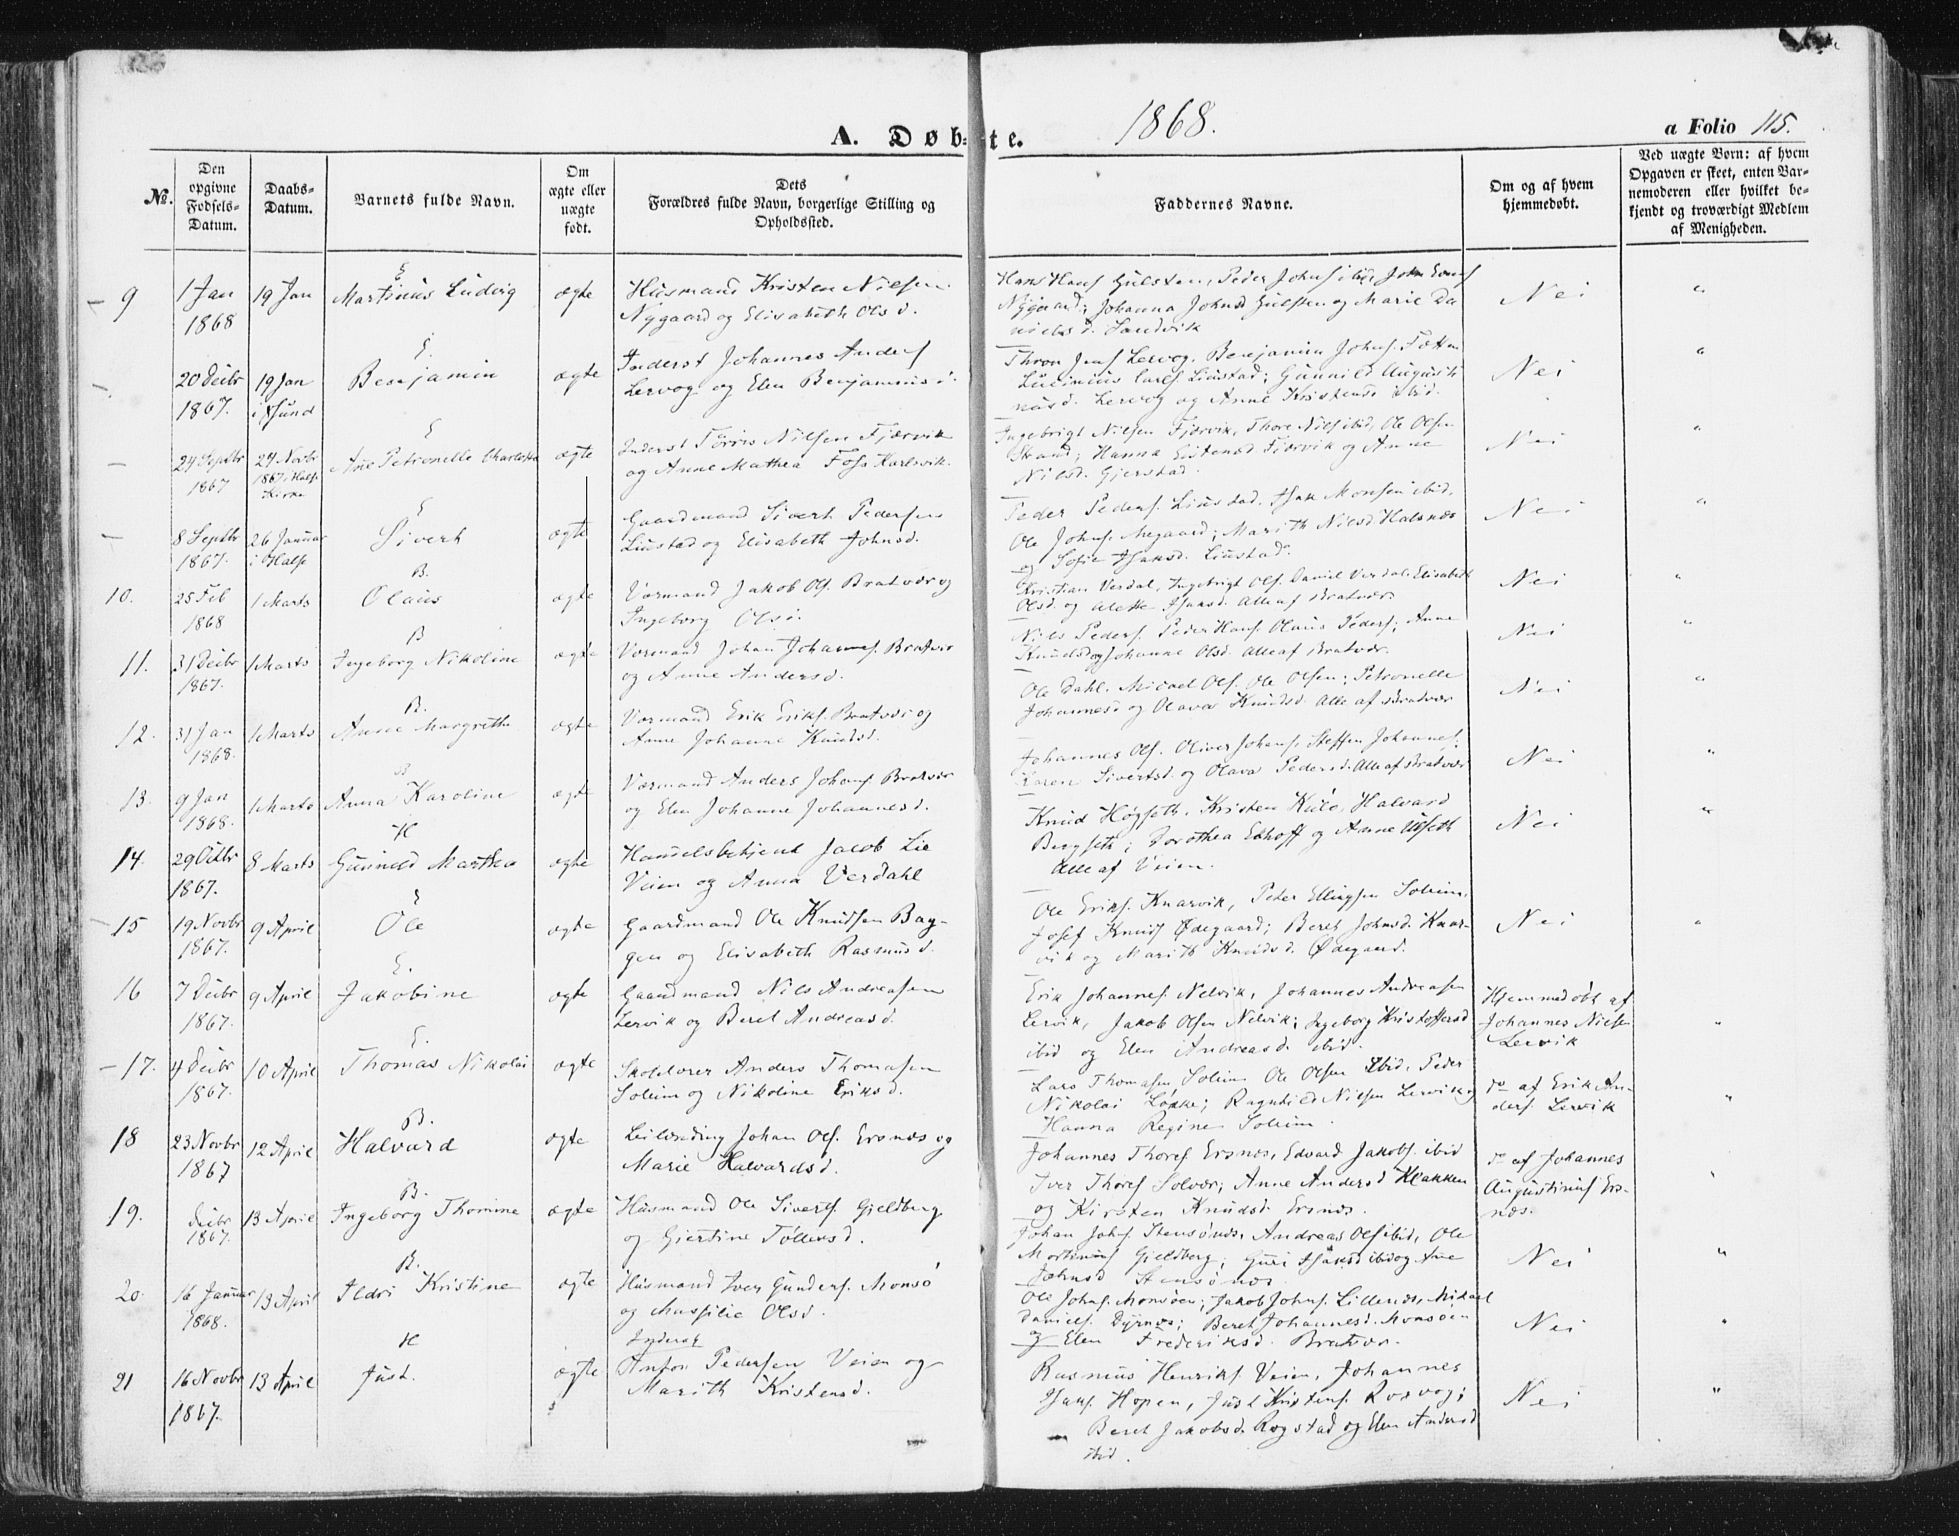 A. Døbte.
1868.
a Folio 115.
No.
Den opgivne Fødsels-Datum.
Daabs-Datum.
Barnets fulde Navn.
Om ægte eller uægte født.
Dets Forældres fulde Navn, borgerlige Stilling og Opholdssted.
Faddernes Navne.
Om og af hvem hjemmedøbt.
Ved uægte Børn: af hvem Opgaven er skeet, enten Barnemoderen eller hvilket bekjendt og troværdigt Medlem af Menigheden.
9
1 Jan 1868
19 Jan
E
Martinus Ludvig
ægte
Husmand Kristen Nielsen
Nygaard og Elisabeth Olsd.
Hans Hans Gulsten, Peder Johns ibid, John
Nygaard; Johanna Johnsd Gulsten og Marie Da
nielsd. Sandvik
Nei
"
20 Decbr 1867.
19 Jan i
E.
Benjamin
ægte
Inderst Johannes Anders
Lervog og Elen Benjaminsd.
Thron Jens Lervog, Benjamin Johns.
Lucinius Carls Liustad; Gunnild Augusti
nusd. Lervog og Anne Kristensd ibid.
Nei
"
24 Septbr 1867
24 Novbr 1867 i Halse Kirke
E
Ane Petronelle Charlotte
ægte
Inderst Tørris Nilsen Fjærvik
og Anne Mathea Foss Karlsvik.
Ingebrigt Nilsen Fjærvik, Thore Nils ibid, Ole Olsen
Strand; Hanna Estensd Fjærvik og Anne
Nilsd. Gjerstad.
Nei
"
8 Septbr 1867.
26 Januar i Halse
E
Sivert
ægte
Gaardmand Sivert Pedersen
Liustad og Elisabeth Johnsd.
Peder Peders. Liustad, Isak Monsen ibid,
Ole Johns. Aegaard; Marith Nilsd Halsnæs
og Sofie Isaksd. Liustad.
Nei
"
10.
25 Feb 1868
1 Marts
B.
Olaus
ægte
Værmand Jakob Ols. Bratvær og
Ingeborg Olsd.
Kristian Verdal, Ingebrigt Ols. Daniel Verdal. Elisabeth
Olsd. og Alette Isaksd. Alle af Bratvær.
Nei
"
11.
31 Decbr 1867.
1 Marts
B
Ingeborg Nikoline
ægte
Værmand Johan Johannes. Bratvær
og Anne Andersd.
Nils Peders. Peder Hans. Olaus Peders; Anne
Knudsd og Johanne Olsd. Alle af Bratvær.
Nei
"
12.
31 Jan 1868.
1 Marts
B.
Anne Margrethe
ægte
Værmand Erik Eriks. Bratvær og
Anne Johanne Knudsd.
Ole Dahl. Micael Ols. Ole Olsen; Petronelle
Johannesd og Olava Knudsd. Alle af Bratvær
Nei
"
13.
9 Jan 1868.
1 Marts
B
Anna Karoline
ægte
Værmand Anders Johans. Bratvær
og Elen Johanne Johannesd.
Johannes Ols. Oliver Johans. Steffen Johannes;
Karen Sivertsd. og Olava Pedersd. Alle af Bratvær
Nei
"
14.
29 Octbr 1867.
8 Marts
K
Gunnild Marthea
ægte
Handelsbetjent Jacob Lie
Veien og Anna Verdahl
Knud Høgseth, Kristen Kulø, Halvard
Bergseth; Dorothea Ekhoff og Anne Ulfseth
Alle af Veien.
Nei
"
15
19 Novbr 1867.
9 April
E
Ole
ægte
Gaardmand Ole Knudsen Bag-
gen og Elisabeth Rasmusd.
Ole Eriks. Knarvik, Peter Ellingsen Solem,
Josef Knuds Ødegaard; Beret Johnsd. Knar-
vik og Marith Knudsd. Ødegaard.
Nei
"
16
7 Decbr 1867.
9 April
E.
Jakobine
ægte
Gaardmand Nils Andreasen
Lervik og Beret Andreasd.
Erik Johannes. Nelvik, Johannes Andreasen
Lervik, Jakob Olsen Nelvik; Ingeborg Kristoffersd
ibid og Elen Andreasd. ibid.
Hjemmedøbt af
Johannes Nielsen
Lervik
"
17.
4 Decbr 1867.
10 April
E.
Thomas Nikolai
ægte
Skolelærer Anders Thomasen
Solem og Nikoline Eriksd.
Lars Thomasen Solem Ole Olsen ibid, Peder
Nikolai Løkke; Ragnhild Nielsen Lervik og
Hanna Regine Solem.
do af Erik An-
ders. Lervik
"
18
23 Novbr 1867
12 April
B.
Halvard
ægte
Leilænding Johan Ols. Ersnæs og
Marie Halvardsd.
Johannes Thores Ersnæs, Edvard Jakobs. ibid
Iver Thores Solvær; Anne Andersd Klakken
og Kirsten Knudsd. Ersnæs.
do af Johannes
Augustinus Ers-
næs.
"
19.
Decbr 1867.
13 April
B.
Ingeborg Thomine
ægte
Husmand Ole Siverts. Gjeldberg
og Gjertine Tollevsd.
Johan Johs. Stensønæs, Andreas Ols ibid, Ole
Mortinus Gjeldberg; Guri Isaksd ibid og Ane
Johnsd Stensønæs
Nei
"
20.
16 Januar 1868.
13 April
B.
Ildri Kristine
ægte
Husmand Iver Gunders. Monsø
og Massilie Olsd.
Ole Johns. Monsøen; Jakob Johns. Lillenæs, Mikael
Daniels. Dyrnæs; Beret Johannesd. Monsøen
og Elen Frederiksd. Bratvær.
Nei
"
21
16 Novbr 1867.
13 April
K
Just.
ægte
Inderst
Anton Pedersen Veien og
Marith Kristensd.
Rasmus Henriks Veien, Johannes
Isaks. Hopen, Just Kristens. Rosvog;
Beret Jakobsd. Rogstad og Elen Andersd
ibid.
Nei
"